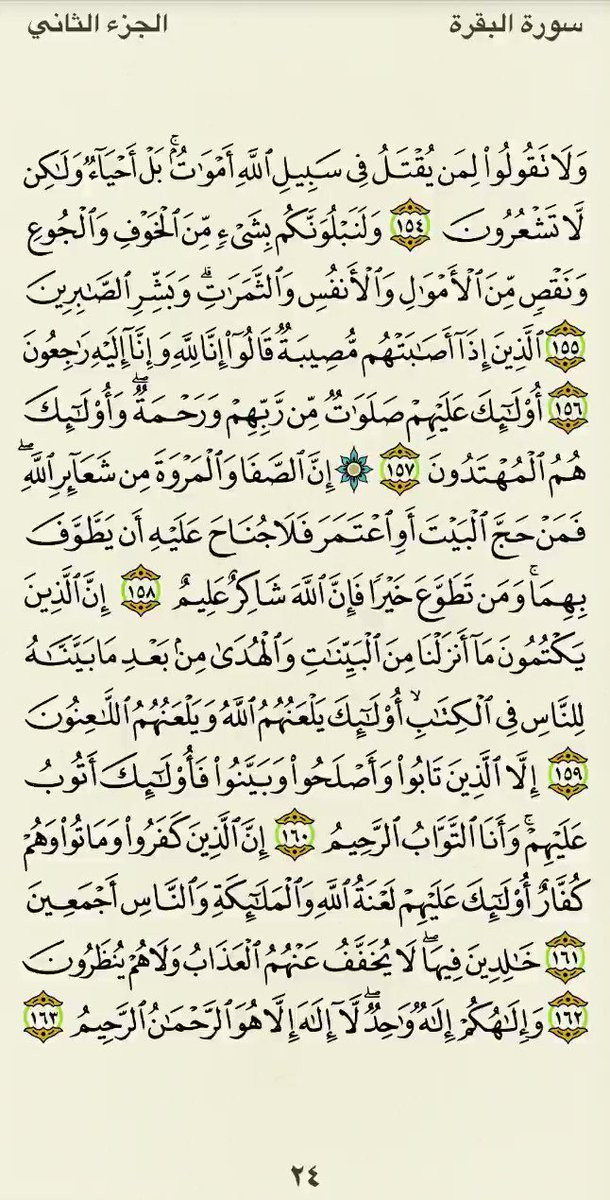 سورة البقرة
الجزء الثاني
وَلَا تَقُولُوا۟ لِمَن يُقْتَلُ فِى سَبِيلِ ٱللَّهِ أَمْوَٰتٌۢ ۚ بَلْ أَحْيَآءٌ وَلَٰكِن
لَّا تَشْعُرُونَ ١٥٤ وَلَنَبْلُوَنَّكُم بِشَىْءٍ مِّنَ ٱلْخَوْفِ وَٱلْجُوعِ
وَنَقْصٍ مِّنَ ٱلْأَمْوَٰلِ وَٱلْأَنفُسِ وَٱلثَّمَرَٰتِ ۗ وَبَشِّرِ ٱلصَّٰبِرِينَ
١٥٥ ٱلَّذِينَ إِذَآ أَصَٰبَتْهُم مُّصِيبَةٌ قَالُوٓا۟ إِنَّا لِلَّهِ وَإِنَّآ إِلَيْهِ رَٰجِعُونَ
١٥٦ أُو۟لَٰٓئِكَ عَلَيْهِمْ صَلَوَٰتٌ مِّن رَّبِّهِمْ وَرَحْمَةٌ ۖ وَأُو۟لَٰٓئِكَ
هُمُ ٱلْمُهْتَدُونَ ١٥٧ إِنَّ ٱلصَّفَا وَٱلْمَرْوَةَ مِن شَعَآئِرِ ٱللَّهِ ۖ
فَمَنْ حَجَّ ٱلْبَيْتَ أَوِ ٱعْتَمَرَ فَلَا جُنَاحَ عَلَيْهِ أَن يَطَّوَّفَ
بِهِمَا ۚ وَمَن تَطَوَّعَ خَيْرًا فَإِنَّ ٱللَّهَ شَاكِرٌ عَلِيمٌ ١٥٨ إِنَّ ٱلَّذِينَ
يَكْتُمُونَ مَآ أَنزَلْنَا مِنَ ٱلْبَيِّنَٰتِ وَٱلْهُدَىٰ مِنۢ بَعْدِ مَا بَيَّنَّٰهُ
لِلنَّاسِ فِى ٱلْكِتَٰبِ ۙ أُو۟لَٰٓئِكَ يَلْعَنُهُمُ ٱللَّهُ وَيَلْعَنُهُمُ ٱللَّٰعِنُونَ
١٥٩ إِلَّا ٱلَّذِينَ تَابُوا۟ وَأَصْلَحُوا۟ وَبَيَّنُوا۟ فَأُو۟لَٰٓئِكَ أَتُوبُ
عَلَيْهِمْ ۚ وَأَنَا ٱلتَّوَّابُ ٱلرَّحِيمُ ١٦٠ إِنَّ ٱلَّذِينَ كَفَرُوا۟ وَمَاتُوا۟ وَهُمْ
كُفَّارٌ أُو۟لَٰٓئِكَ عَلَيْهِمْ لَعْنَةُ ٱللَّهِ وَٱلْمَلَٰٓئِكَةِ وَٱلنَّاسِ أَجْمَعِينَ
١٦١ خَٰلِدِينَ فِيهَا ۖ لَا يُخَفَّفُ عَنْهُمُ ٱلْعَذَابُ وَلَا هُمْ يُنظَرُونَ
١٦٢ وَإِلَٰهُكُمْ إِلَٰهٌ وَٰحِدٌ ۖ لَّآ إِلَٰهَ إِلَّا هُوَ ٱلرَّحْمَٰنُ ٱلرَّحِيمُ ١٦٣
٢٤